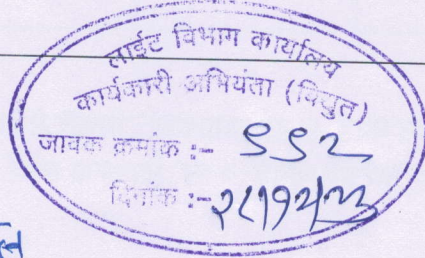 लाईट विभाग कार्यालय
कार्यकारी अभियंता (विद्युत)
जावक क्रमांक :- ९९२
दिनांक :-